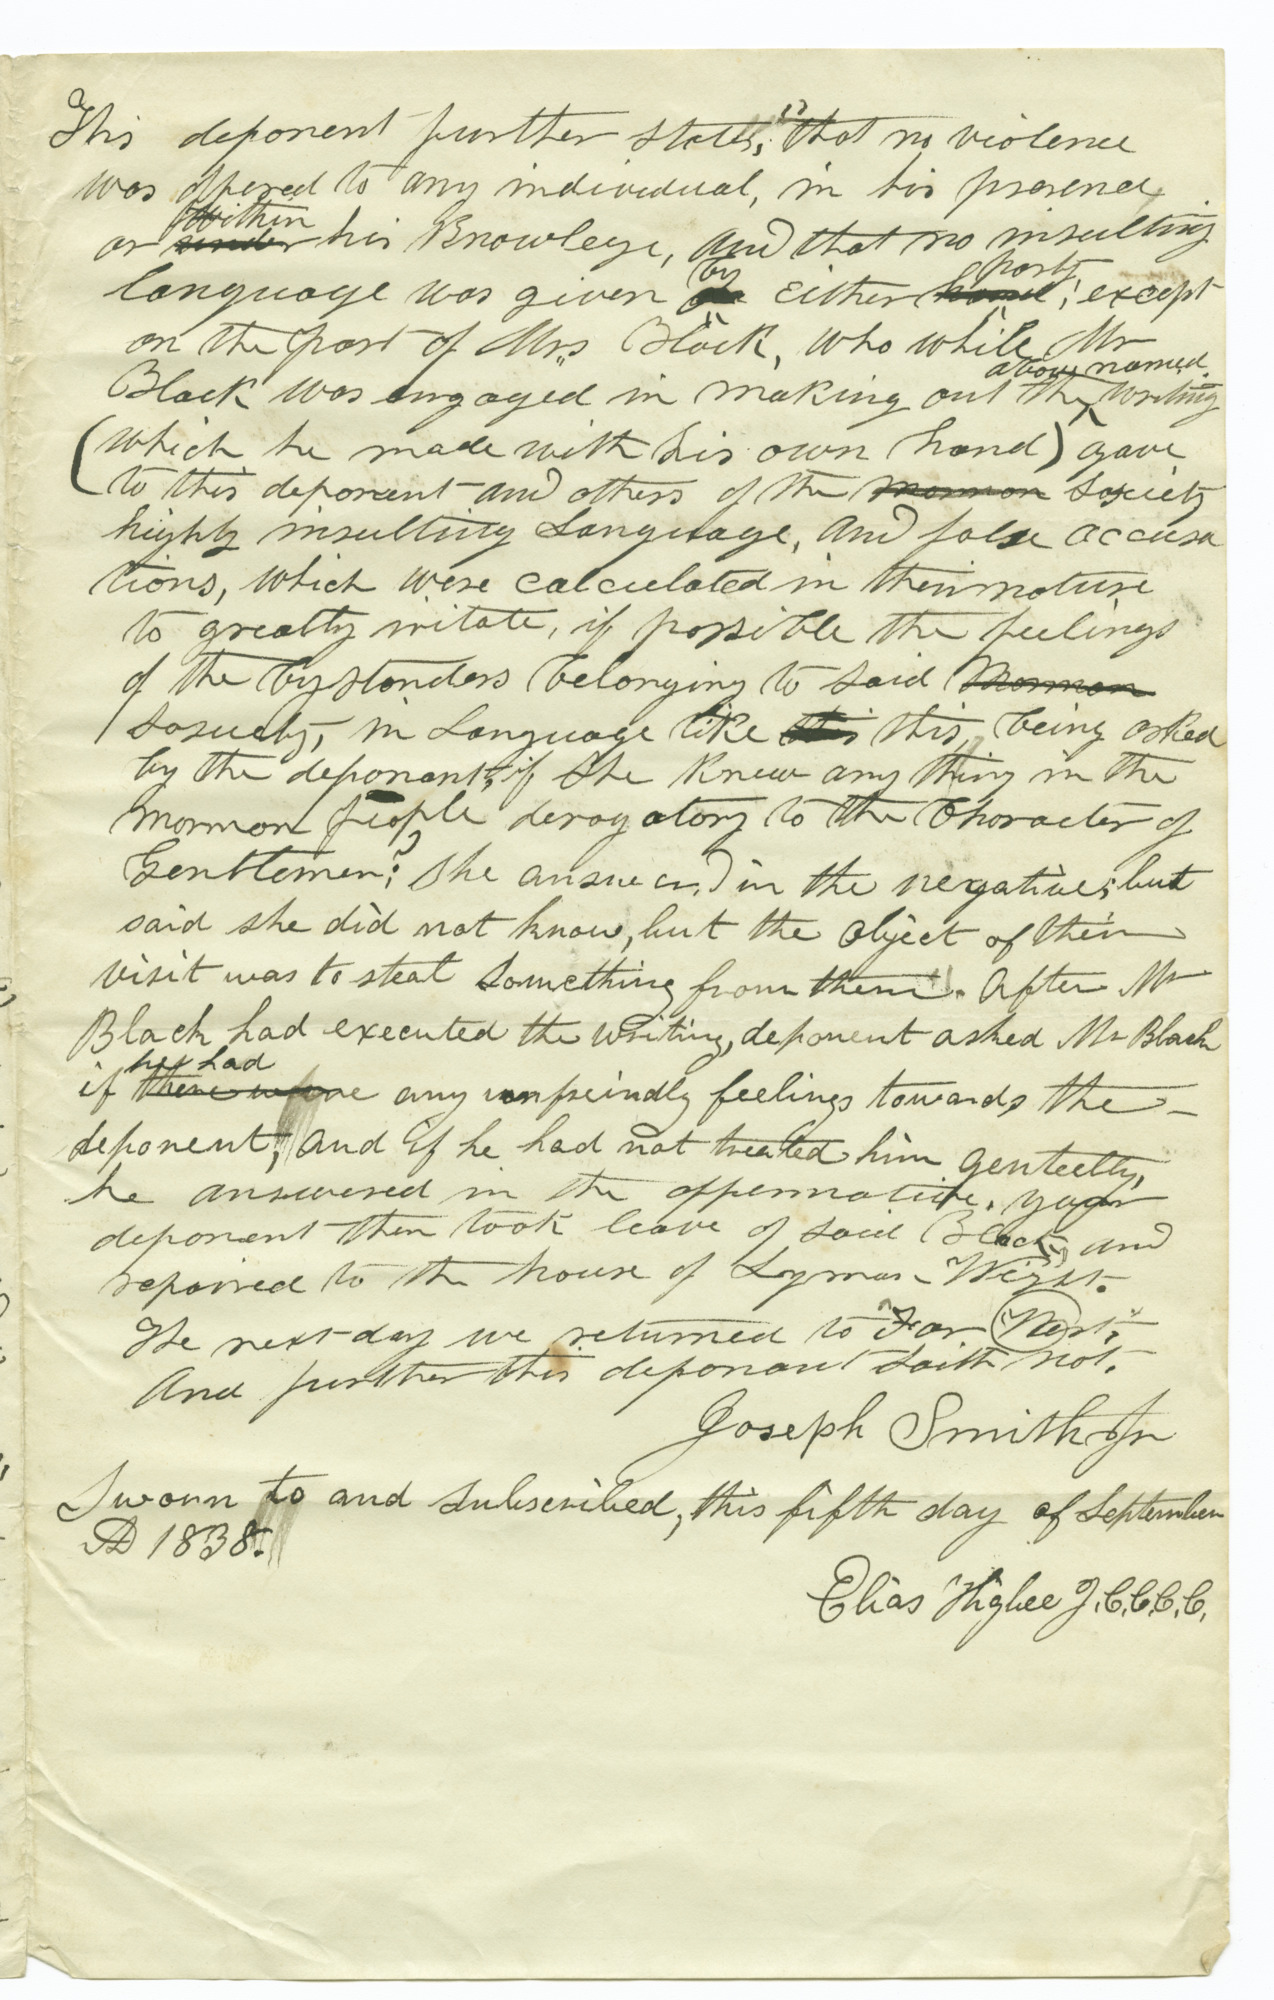 This deponent further states, that no violence
was offered to any individual, in his presence
within
or under his Knowlege, and that no insulting
by party
language was given either ; except
on the part of Mrs Black, who while Mr
above named
Black was engaged in making out the writing
(which he made with his own hand) gave
to this deponent and others of the mormon society
highly insulting Language, and false accusa
tions, which were calculated in their nature
to greatly iritate, if possible the feelings
of the bystanders belonging to said Mormon
sosiety, in Language like this this, being asked
by the deponant, if she knew any thing in the
mormon people derogatory to the Character of
Gentlemen? she answered in the negative; but
said she did not know, but the object of their
visit was to steal something from them. After Mr
Black had executed the writing, deponent asked Mr Black
he had
if there were any unfreindly feelings towards the
deponent, and if he had not treated him genteelly,
he answered in the affermative. your
deponent then took leave of said Black and
repaired to the house of Lyman Wight.
The next day we returned to Far West,
And further this deponant saith not.
Joseph Smith Jr
Sworn to and subscribed, this fifth day of September
AD 1838.
Elias Higbee J.C.C.C.C.